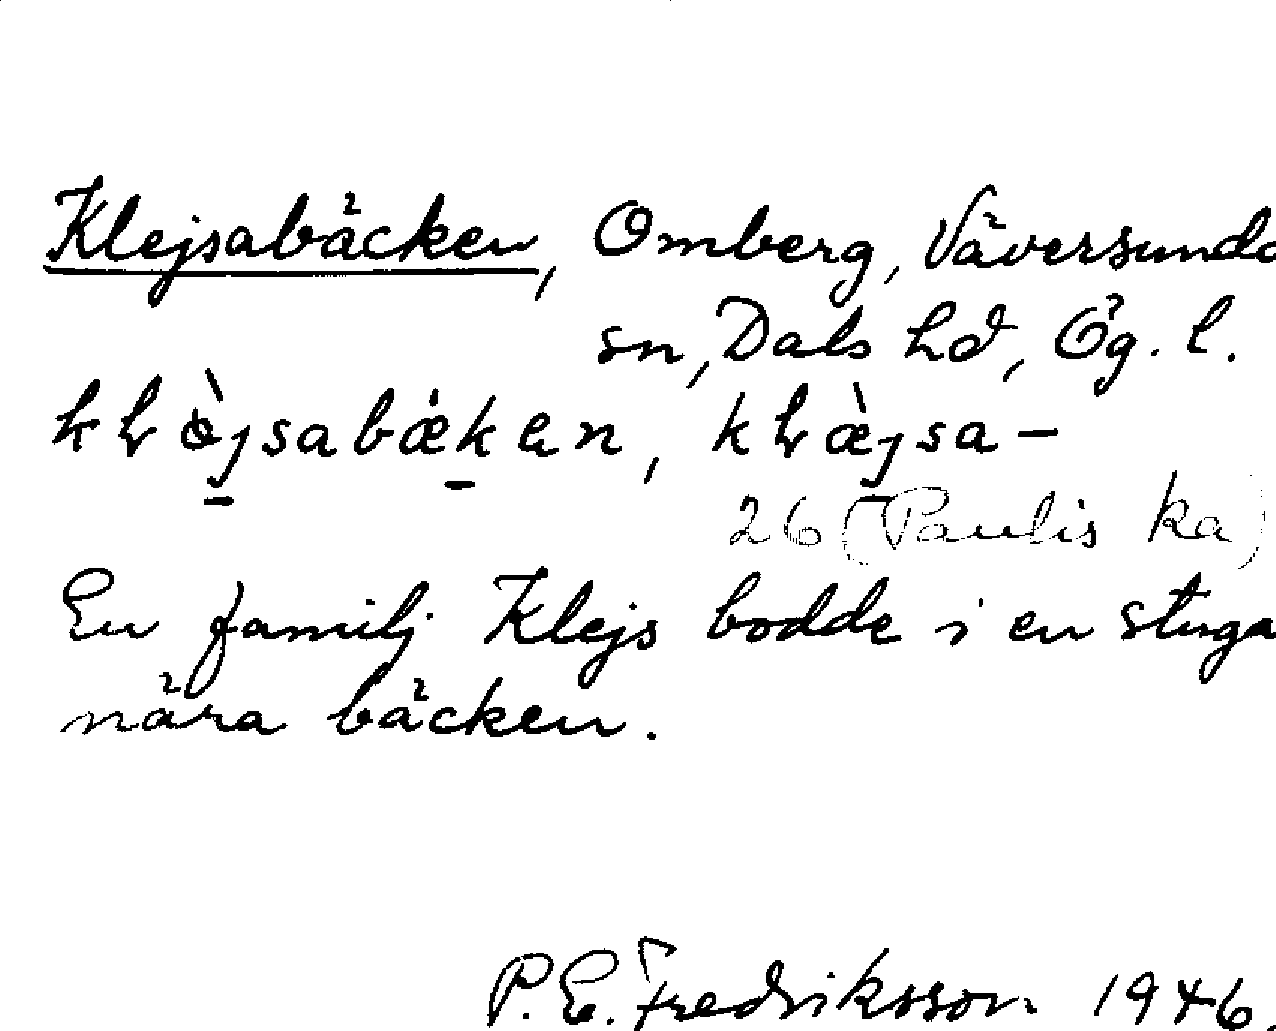 Klejsabäcken, Omberg, Väversunda
sn, Dals hd, Ög. l.
En familj Klejs bodde i en stuga
26 (Paulis ka)
nära bäcken.
P. E. Fredriksson 1946.